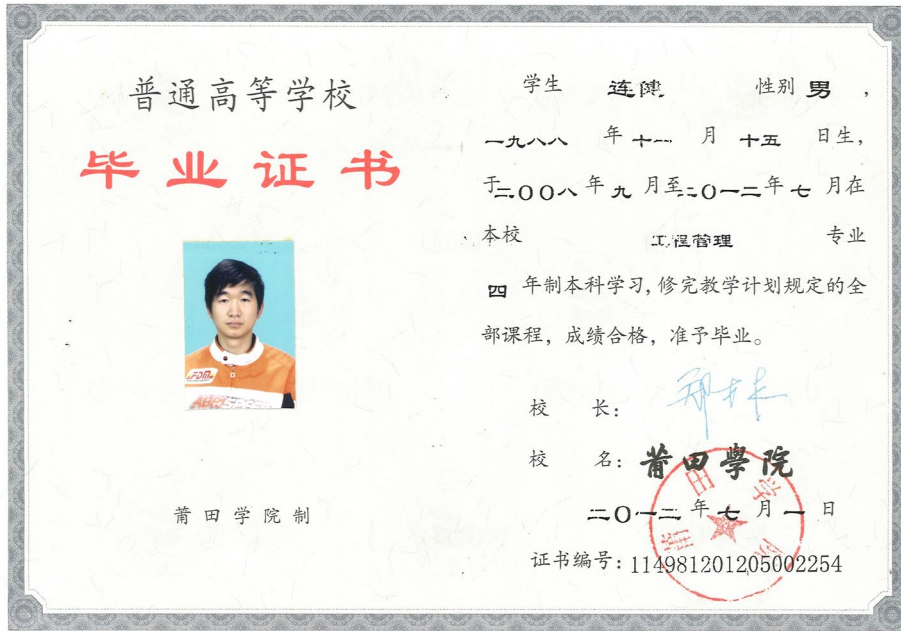 普通高等学校
毕业证书
莆田学院制
学生 连健 性别 男，
一九八八 年 十一 月 十五 日生，
于二〇〇八年 九 月至二〇一二年 七 月在
本校 工程管理 专业
四 年制本科学习，修完教学计划规定的全
部课程，成绩合格，准予毕业。
校 长：
校 名：莆田學院
二〇一二 年 七 月 一 日
证书编号：114981201205002254
FDM
莆田学院